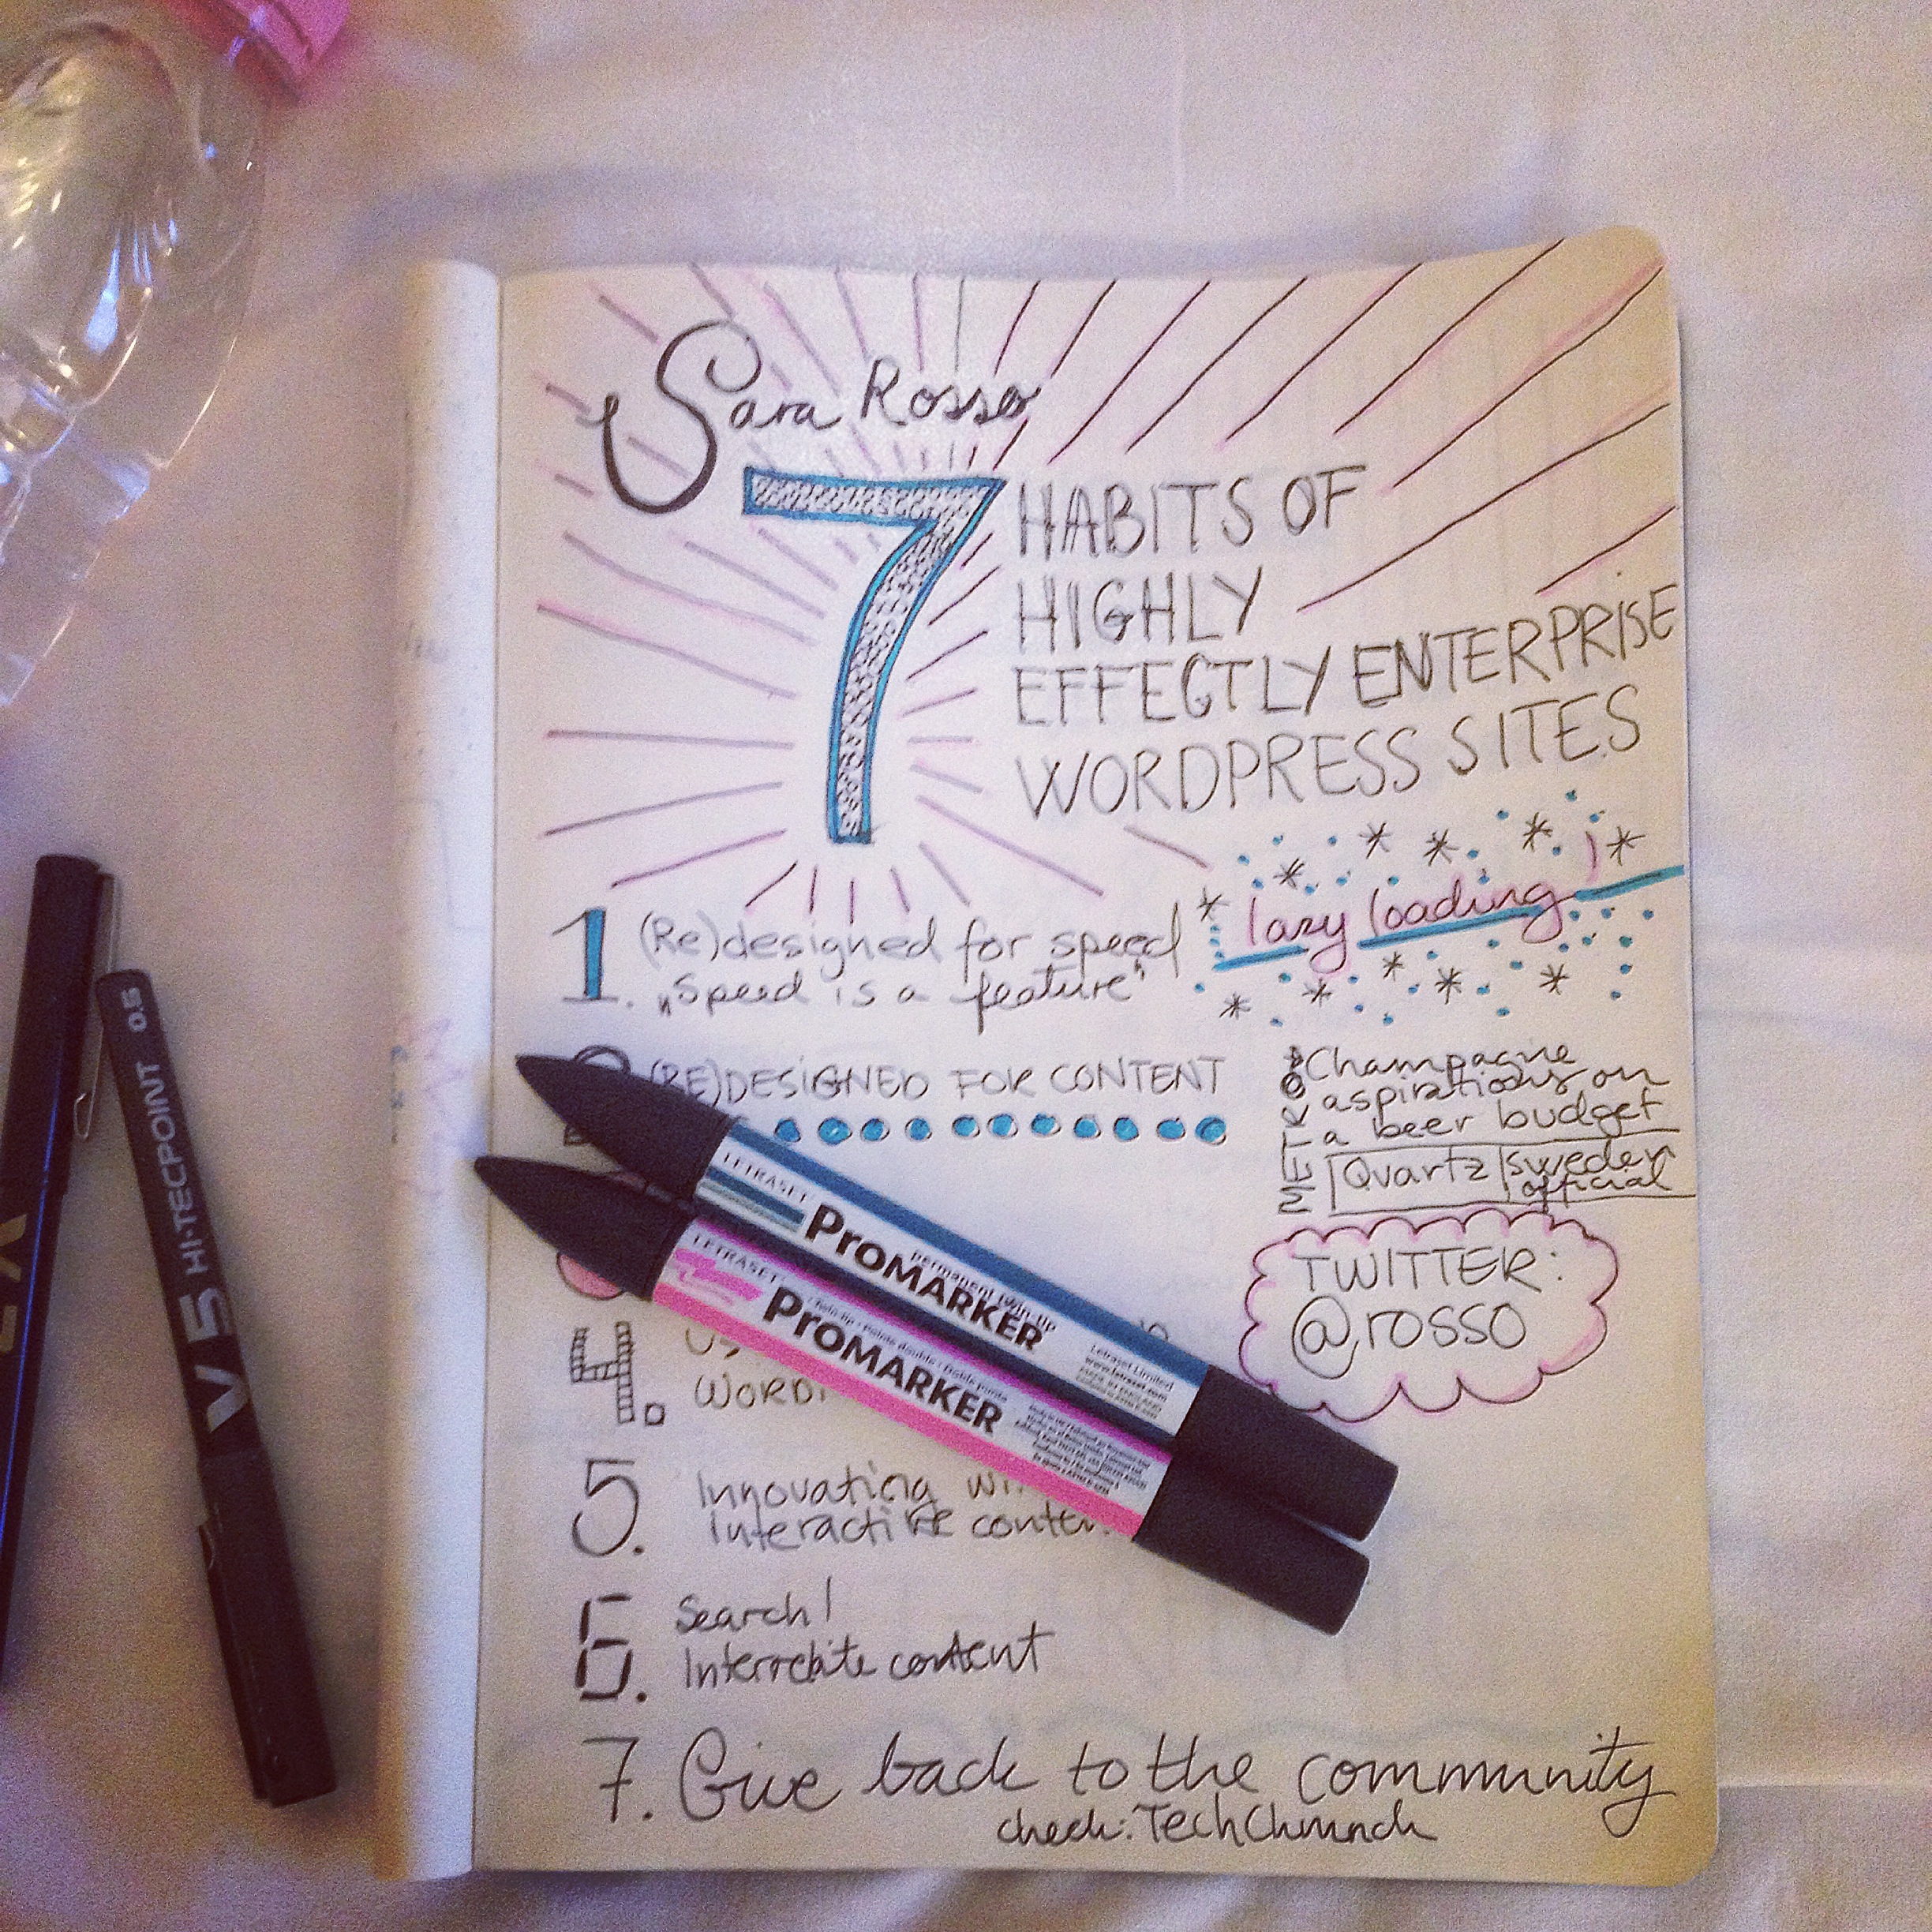 Sara Rosso
7 HABITS OF
HIGHLY
EFFECTLY ENTERPRISE
WORDPRESS SITES
1. (Re)designed for speed
„Speed is a feature"
lazy loading!
(RE)DESIGNED FOR CONTENT
METRO
Champagne
aspirations on
a beer budget
Quartz sweden
official
TWITTER:
@rosso
4.
5. Innovating
interactive
6. Search!
Interrelate content
7. Give back to the community
check: TechChrunch
LETRASET
PROMARKER
PERMANENT TWIN-TIP
Letraset Limited
www.letraset.com
LETRASET
PROMARKER
V5 HI-TECPOINT 0.5